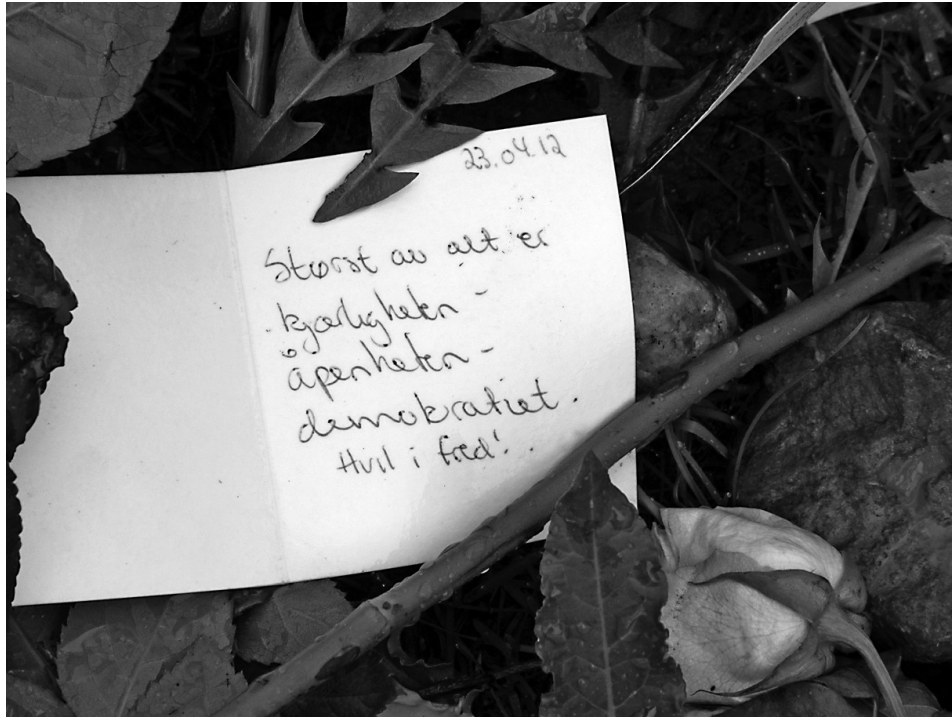 23.04.12
Størst av alt er
kjærligheten -
åpenheten -
demokratiet.
Hvil i fred!